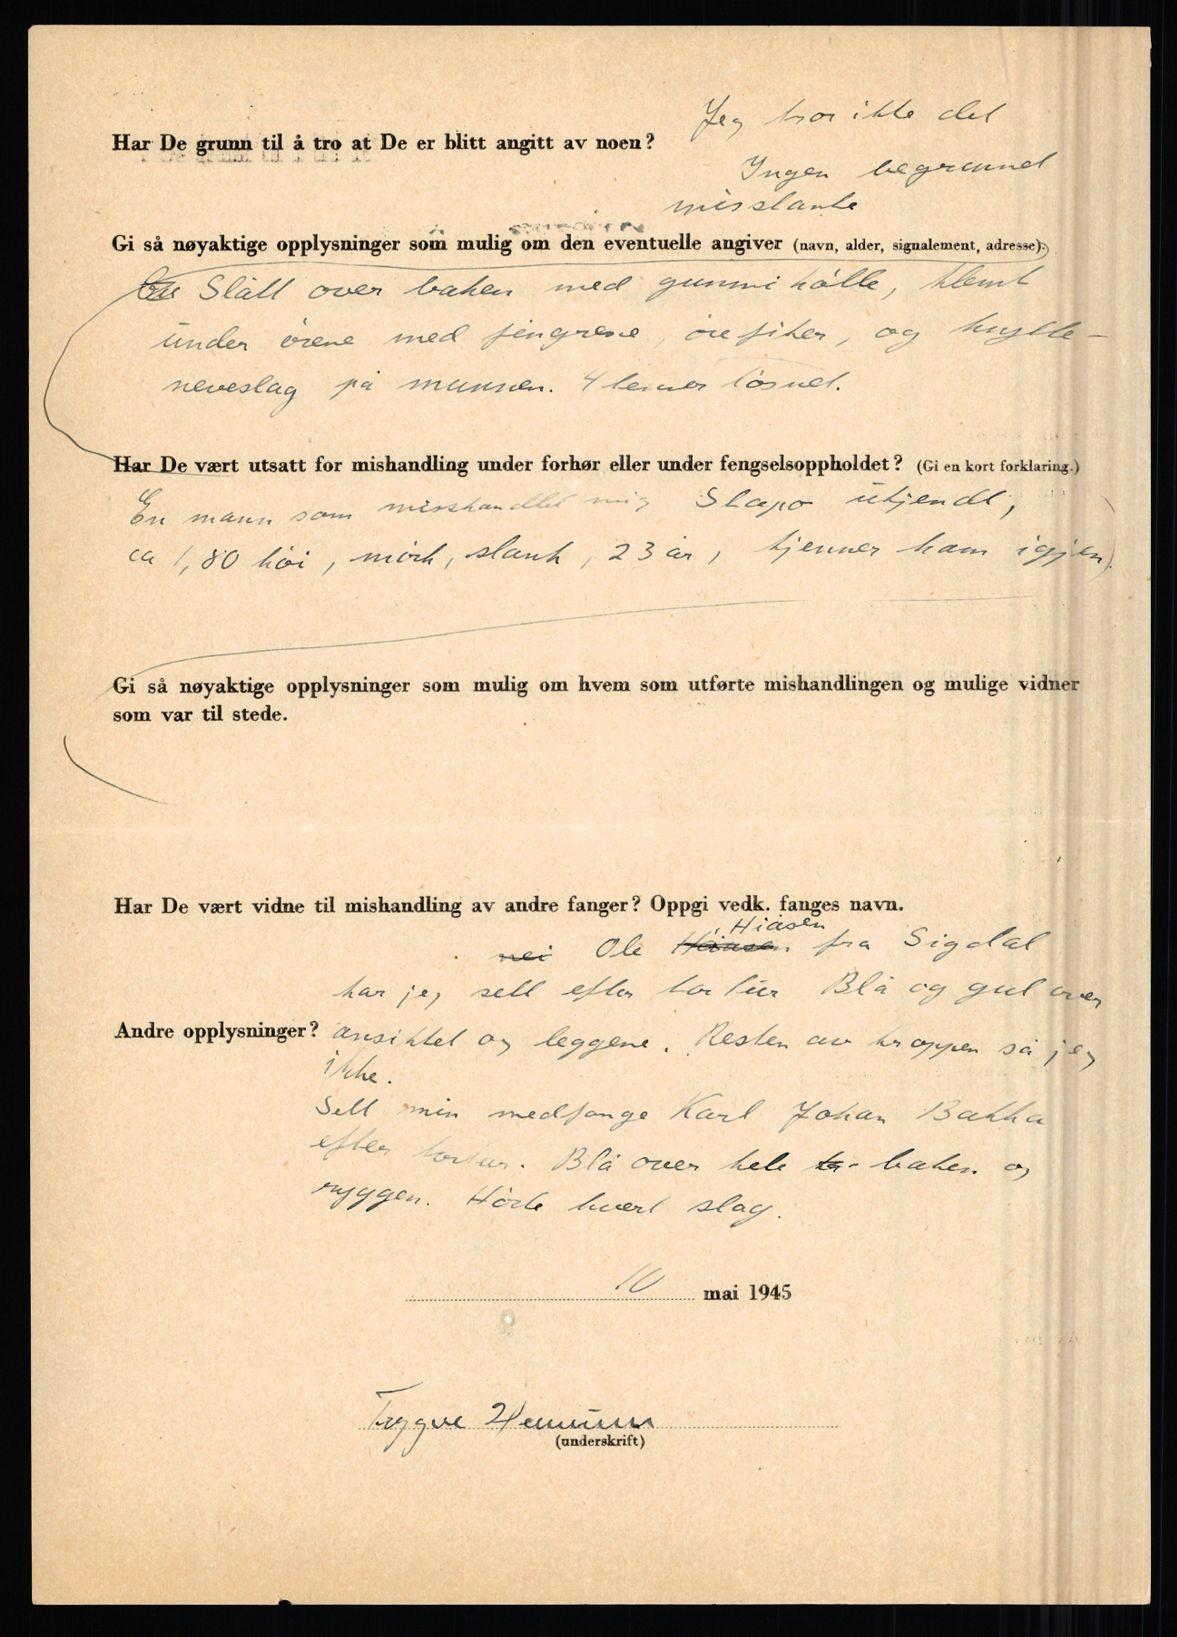 Jeg tror ikke det
Har De grunn til å tro at De er blitt angitt av noen?
Ingen begrunnet
misstanke
Gi så nøyaktige opplysninger som mulig om den eventuelle angiver (navn, alder, signalement, adresse).
Slått over baken med gummi kølle, klemt
under ørene med fingrene, ørefiker, og knytte-
neveslag på munnen. 4 tenner løsnet.
Har De vært utsatt for mishandling under forhør eller under fengselsoppholdet? (Gi en kort forklaring.)
En mann som misshandlet mig Stapo utkjendt,
ca 1,80 höi, mörk, slank, 23 år, kjenner ham igjen).
Gi så nøyaktige opplysninger som mulig om hvem som utførte mishandlingen og mulige vidner
som var til stede.
Har De vært vidne til mishandling av andre fanger? Oppgi vedk. fanges navn.
Hiåsen
nei Ole fra Sigdal
har jeg sett efter tortur Blå og gul over
Andre opplysninger? ansiktet og leggene. Resten av kroppen så jeg
ikke.
Sett min medfange Karl Johan Bakka
efter tortur. Blå over hele baken og
ryggen. Hörte hvert slag.
10 mai 1945
Trygve
(underskrift)